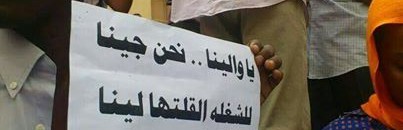 يا والينا .. نحن جينا
للشغله القلتها لينا